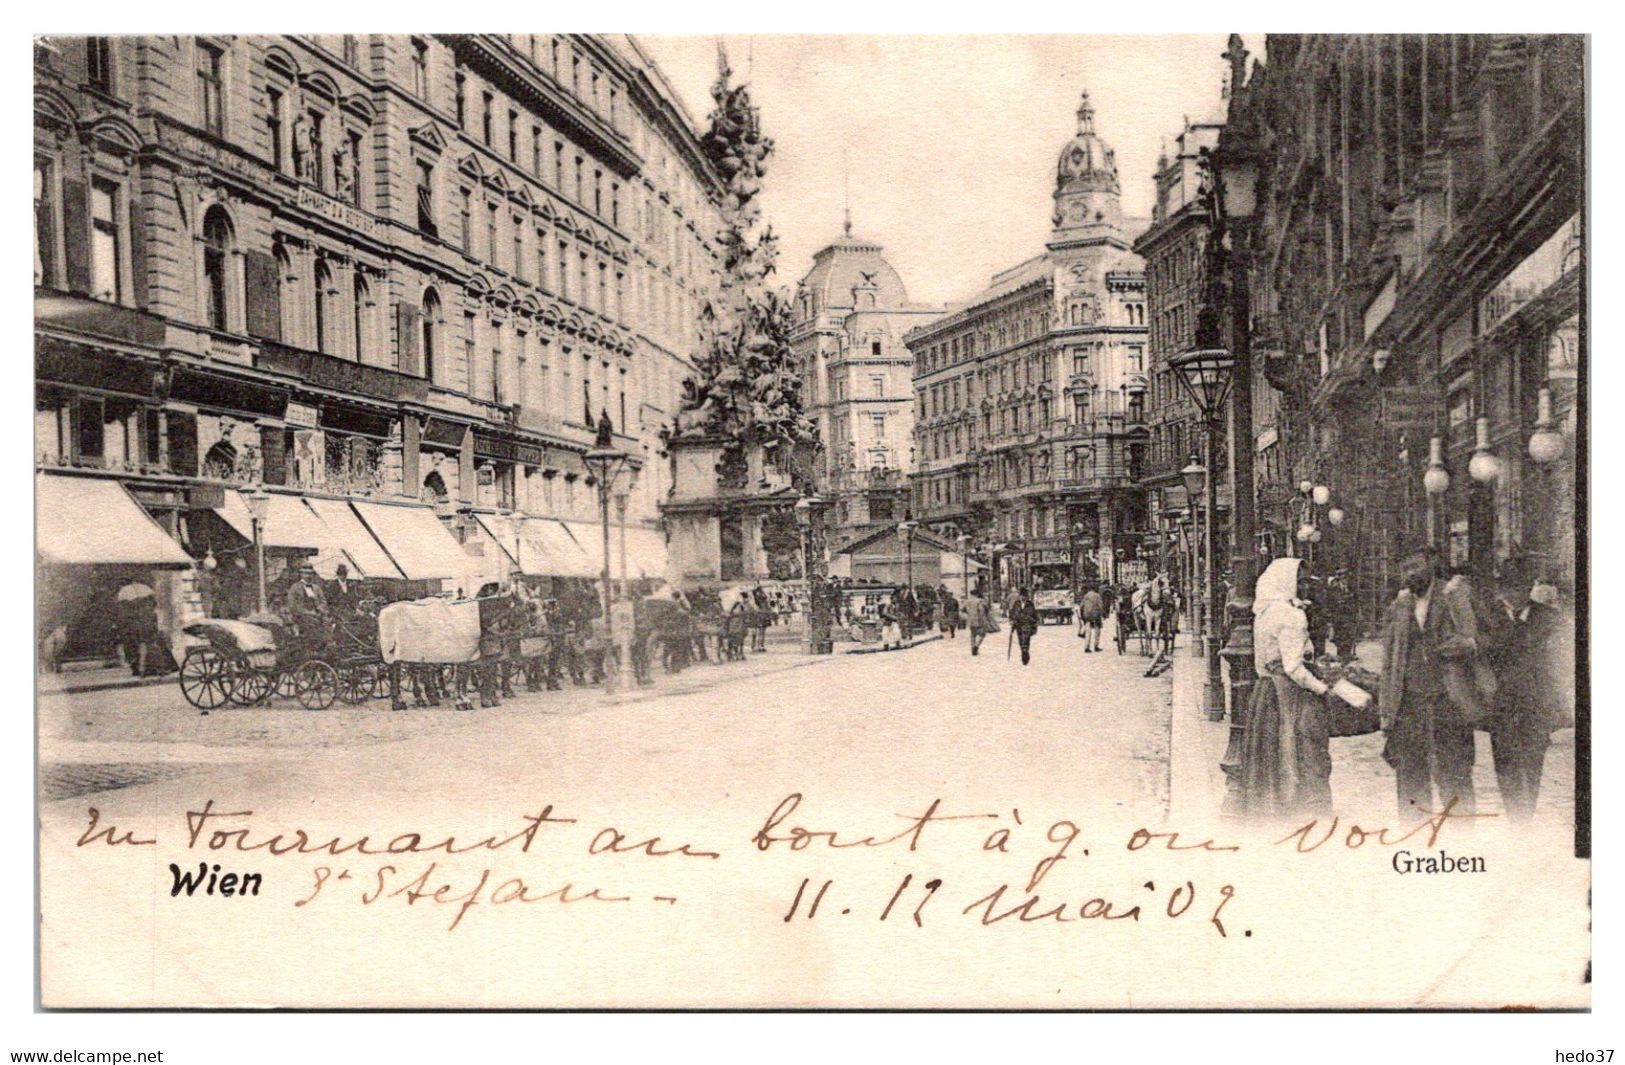 ZAHNARZT
En tournant au bout à g. on voit
Wien
Graben
St Stefan - 11. 12 mai 02.
www.delcampe.net
hedo37